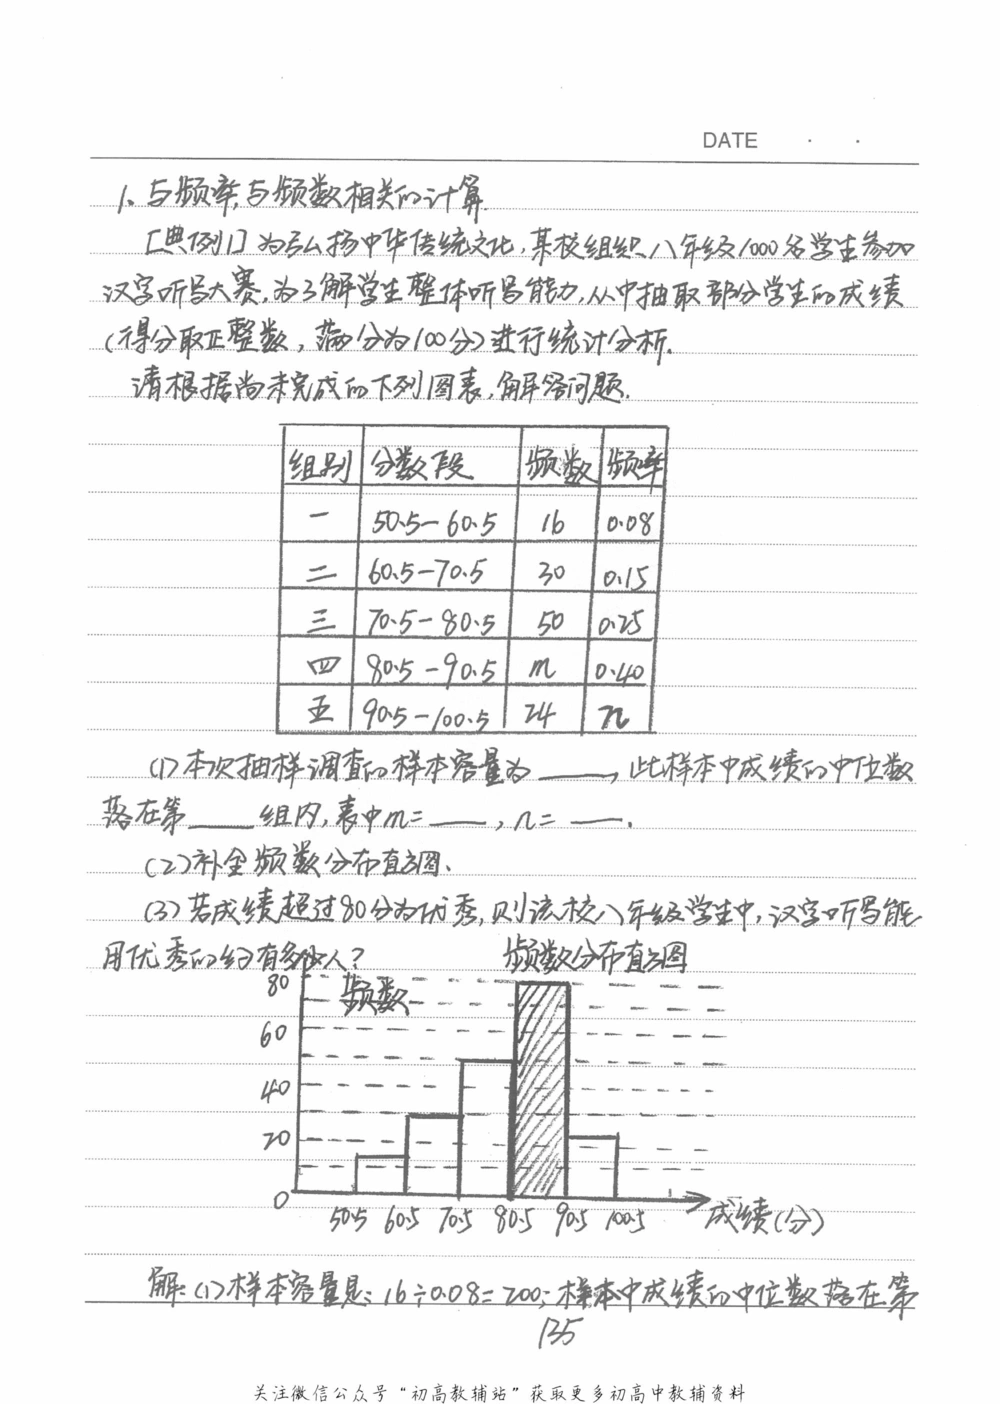 DATE · ·
1、与频率、与频数相关的计算.
[典例1] 为弘扬中华传统文化,某校组织八年级1000名学生参加
汉字听写大赛,为了解学生整体听写能力,从中抽取部分学生的成绩
(得分取正整数,满分为100分)进行统计分析.
请根据尚未完成的下列图表,解答问题.
组别 分数段 频数 频率
一 50.5-60.5 16 0.08
二 60.5-70.5 30 0.15
三 70.5-80.5 50 0.25
四 80.5-90.5 m 0.40
五 90.5-100.5 24 n
(1)本次抽样调查的样本容量为____,此样本中成绩的中位数
落在第____组内,表中m=____,n=____.
(2)补全频数分布直方图.
(3)若成绩超过80分为优秀,则该校八年级学生中,汉字听写能
用优秀的约有多少人?
频数分布直方图
频数
80
60
40
20
0
50.5 60.5 70.5 80.5 90.5 100.5 成绩(分)
解:(1)样本容量是:16÷0.08=200;样本中成绩的中位数落在第
135
关注微信公众号“初高教辅站”获取更多初高中教辅资料